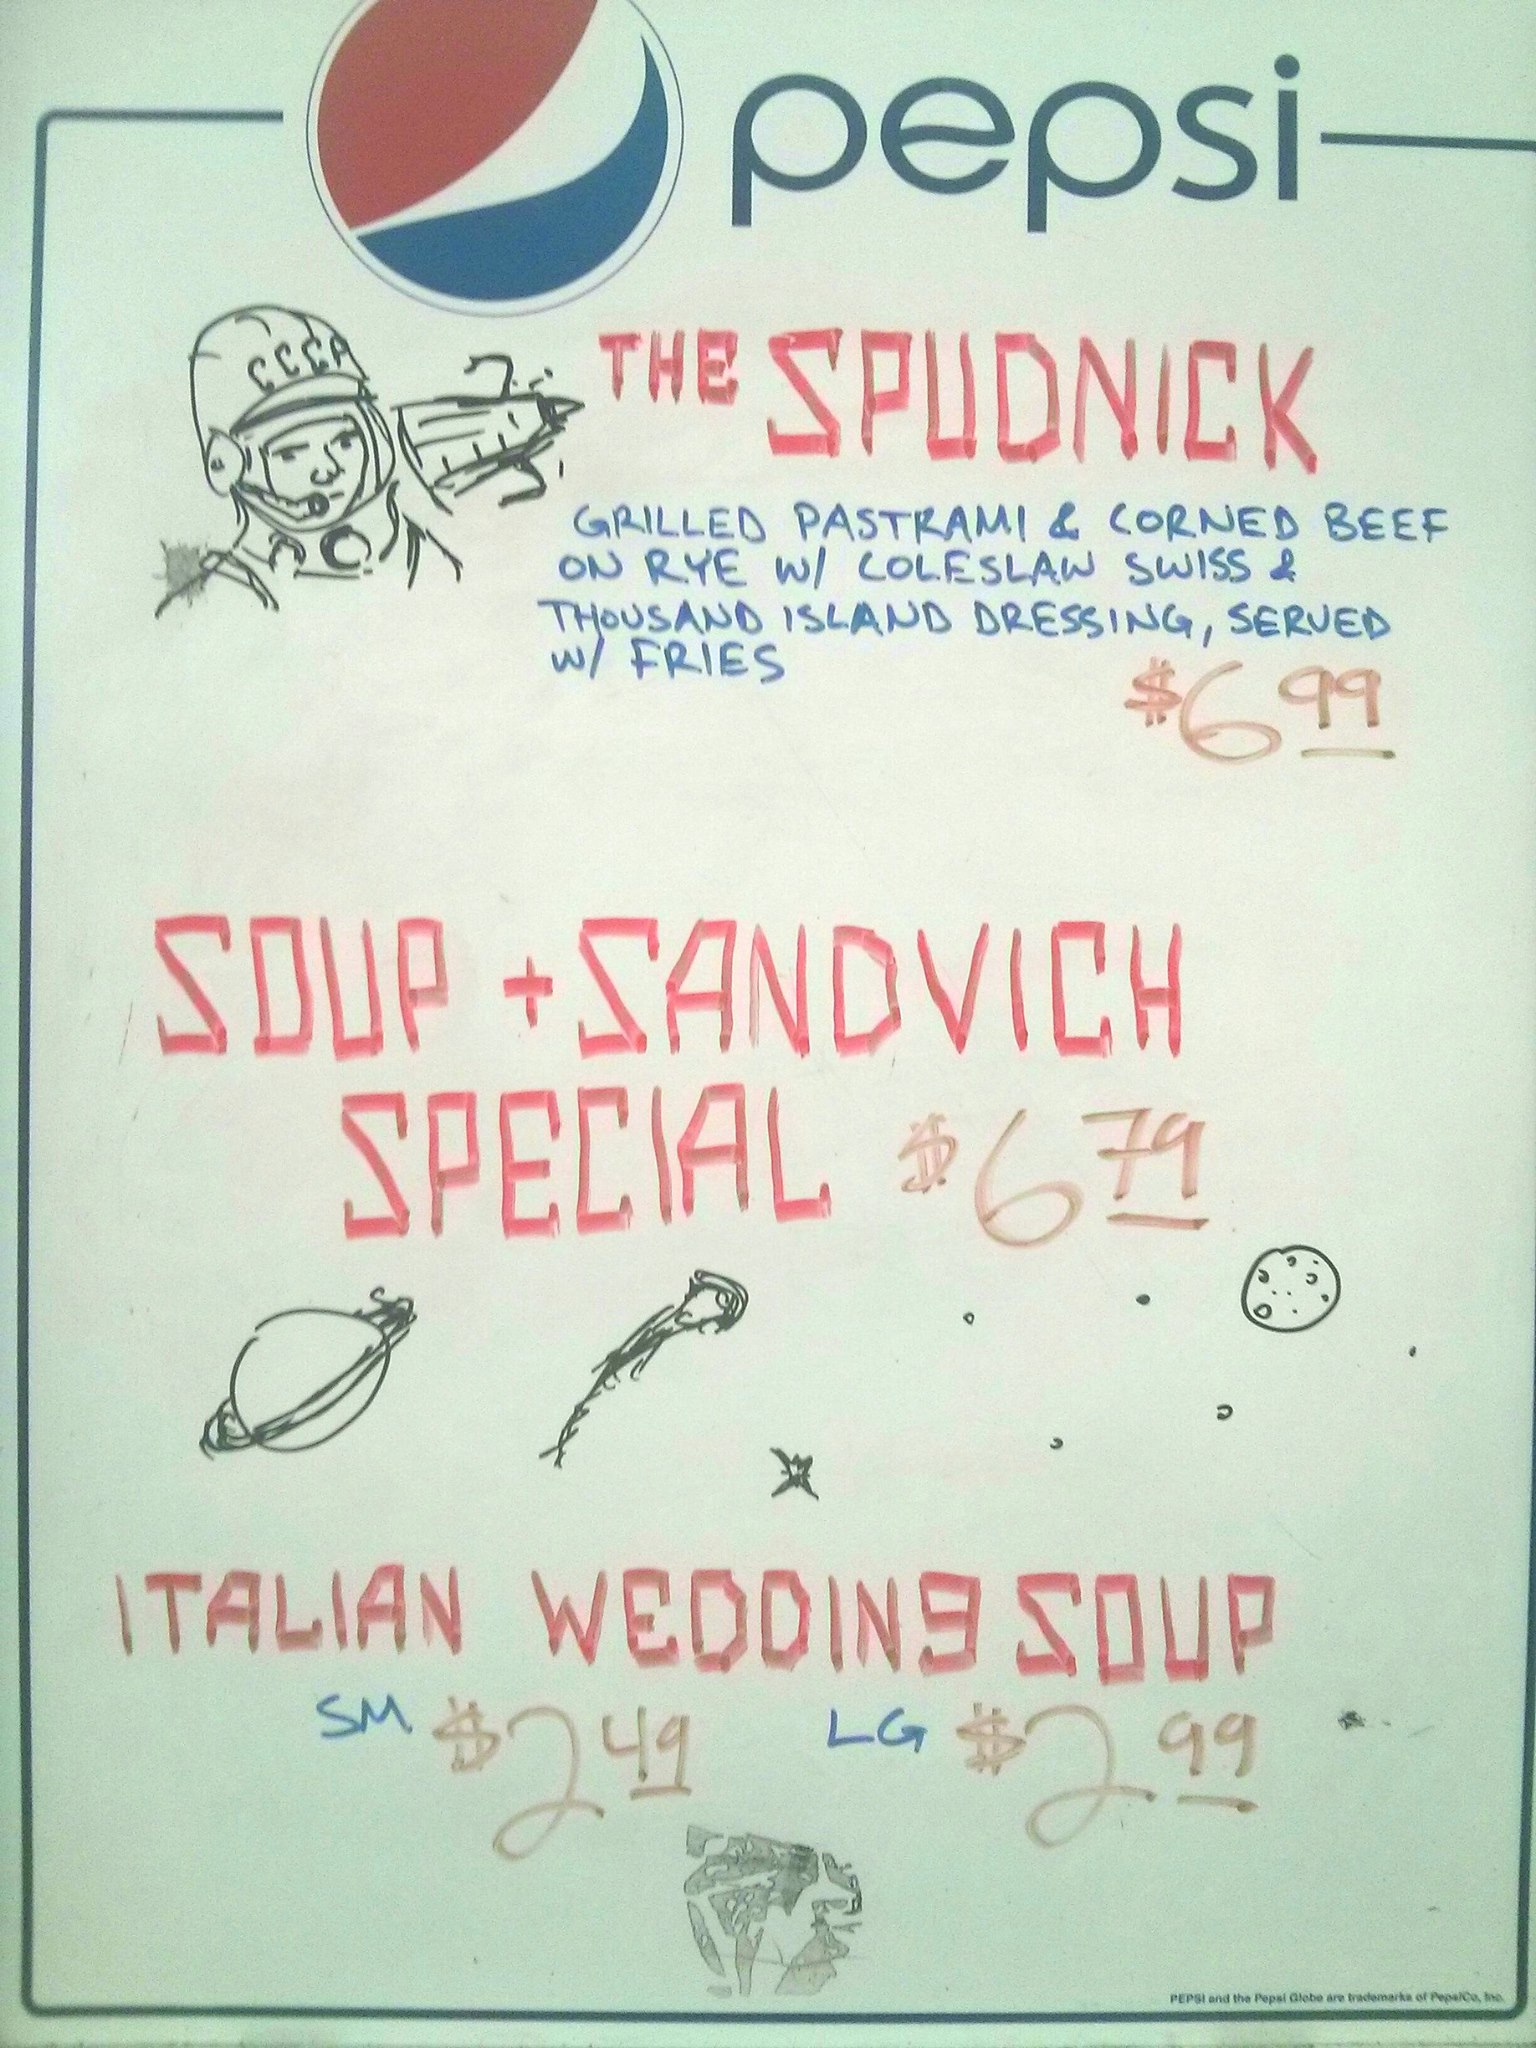 pepsi
CCCP
THE SPUDNICK
GRILLED PASTRAMI & CORNED BEEF
ON RYE W/ COLESLAW SWISS &
THOUSAND ISLAND DRESSING, SERVED
W/ FRIES
$6 99
SOUP + SANDVICH
SPECIAL $6 79
ITALIAN WEDDING SOUP
SM $2 49 LG $2 99
PEPSI and the Pepsi Globe are trademarks of PepsiCo, Inc.